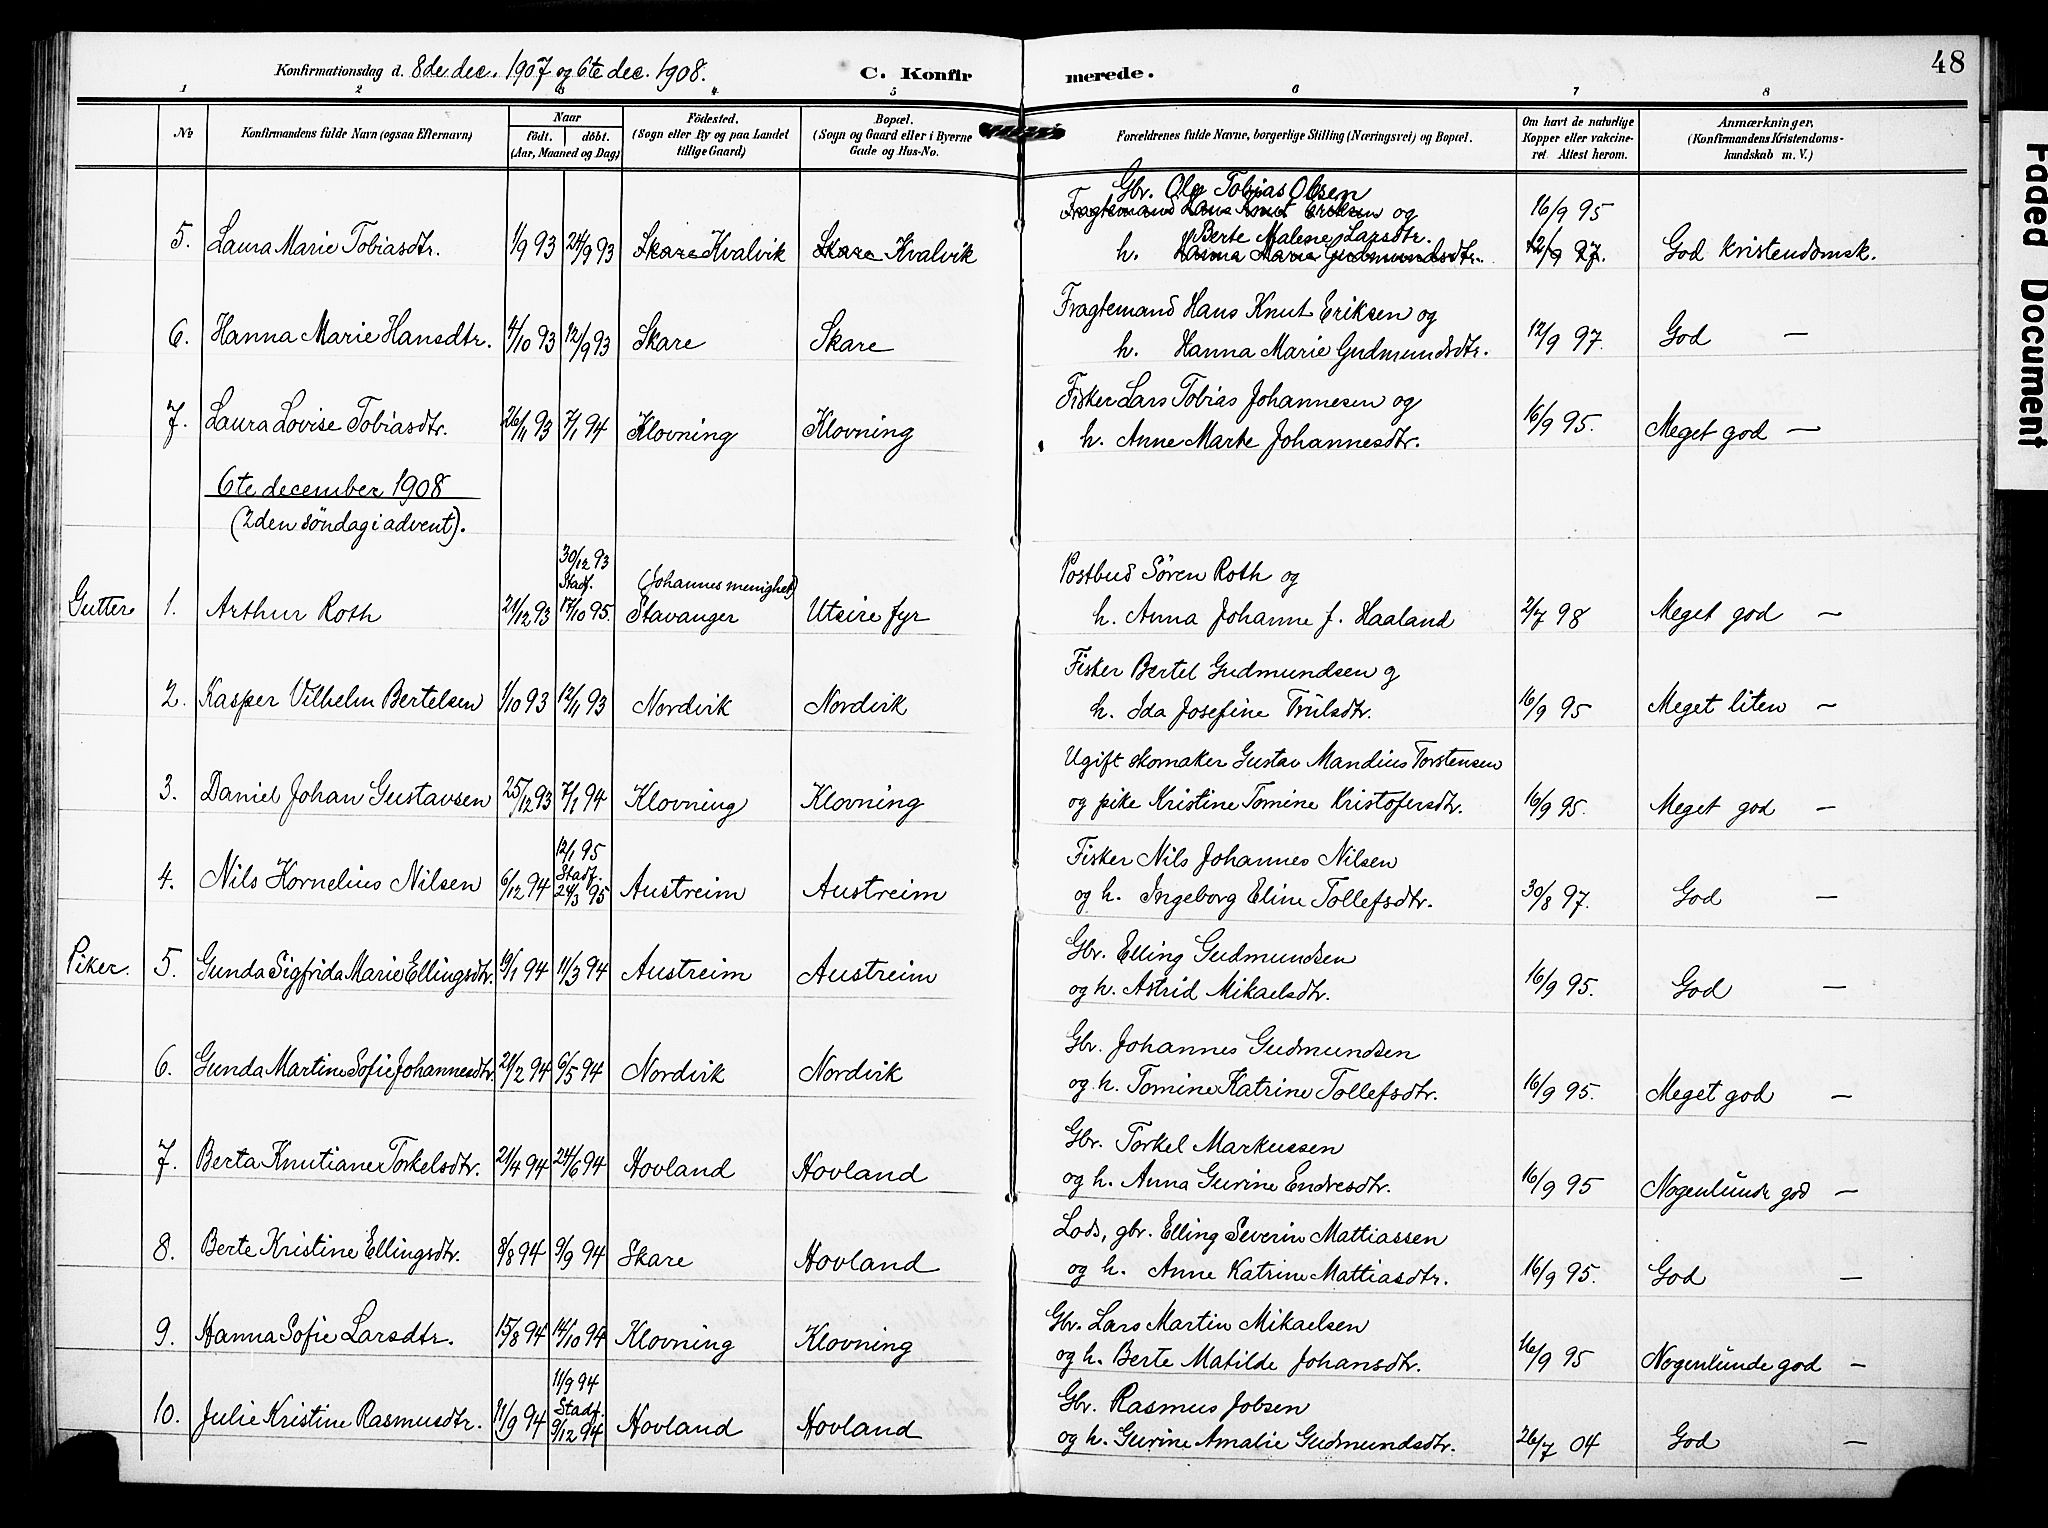 Konfirmationsdag d. 8de dec. 1907 og 6te dec. 1908. C. Konfirmerede. 48
1 2 3 4 5 6 7 8
No Konfirmandens fulde Navn (ogsaa Efternavn) Naar födt. döbt. (Aar, Maaned og Dag) Födested. (Sogn eller By og paa Landet tillige Gaard) Bopæl. (Sogn og Gaard eller i Byerne Gade og Hus-No. Forældrenes fulde Navne, borgerlige Stilling (Næringsvei) og Bopæl. Om havt de naturlige Kopper eller vakcineret Attest herom. Anmærkninger, (Konfirmandens Kristendomskundskab m. V.)
Gbr. Ole Tobias Olsen
Fragtemand Hans Knut Eriksen og 16/9 95
Berte Malene Larsdtr.
5. Laura Marie Tobiasdtr. 1/9 93 24/9 93 Skare Kvalvik Skare Kvalvik h. Hanna Marie Gudmundsdtr. 12/9 97. God kristendomsk.
Fragtemand Hans Knut Eriksen og
6. Hanna Marie Hansdtr. 4/10 93 12/9 93 Skare Skare h. Hanna Marie Gudmundsdtr. 12/9 97. God —
Fisker Lars Tobias Johannesen og
7. Laura Lovise Tobiasdtr. 26/11 93 7/1 94 Klovning Klovning h. Anne Marte Johannesdtr. 16/9 95. Meget god —
6te december 1908
(2den söndag i advent).
30/12 93
Stadf. (Johannes menighet) Postbud Sören Roth og
Gutter 1. Arthur Roth 21/12 93 17/10 95. Stavanger Utsire fyr h. Anna Johanne f. Haaland 2/7 98 Meget god —
Fisker Bertel Gudmundsen g
2. Kasper Vilhelm Bertelsen 1/10 93 12/11 93 Nordvik Nordvik h. Ida Josefine Trulsdtr. 16/9 95 Meget liten —
Ugift skomaker Gustav Mandius Torstensen
3. Daniel Johan Gustavsen 25/12 93 7/1 94 Klovning Klovning og pike Kristine Tomine Kristofersdtr. 16/9 95. Meget god —
12/1 95
Stadf. Fisker Nils Johannes Nilsen
4. Nils Kornelius Nilsen 6/12 94 24/3 95 Austreim Austreim og h. Ingeborg Eline Tollefsdtr. 30/8 97. God —
Gbr. Elling Gudmundsen
Piker. 5. Gunda Sigfrida Marie Ellingsdtr. 19/1 94 11/3 94 Austreim Austreim og h. Astrid Mikaelsdtr. 16/9 95. God —
Gbr. Johannes Gudmundsen
6. Gunda Martine Sofie Johannesdtr. 21/2 94 6/5 94 Nordvik Nordvik og h. Tomine Katrine Tollefsdtr. 16/9 95. Meget god —
Gbr. Torkel Markussen
7. Berta Knutiane Torkelsdtr. 21/4 94 24/6 94 Hovland Hovland og h. Anna Gurine Endresdtr. 16/9 95 Nogenlunde god —
Lods, gbr. Elling Severin Mattiassen
8. Berte Kristine Ellingsdtr. 8/8 94 9/9 94 Skare Hovland og h. Anne Katrine Mattiasdtr. 16/9 95. God —
Gbr. Lars Martin Mikaelsen
9. Hanna Sofie Larsdtr. 15/8 94 14/10 94 Klovning Klovning og h. Berte Matilde Johansdtr. 16/9 95 Nogenlunde god —
11/9 94
Stadf. Gbr. Rasmus Jobsen
10. Julie Kristine Rasmusdtr. 11/9 94 9/12 94 Hovland Hovland og h. Gurine Amalie Gudmundsdtr. 26/7 04 God —
Faded Document